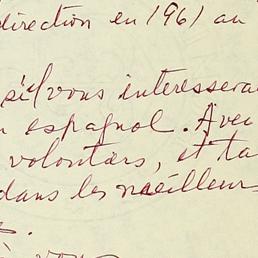 direction en 1961 au
s'il vous intéressera
espagnol. Avec
volontiers, et ta
dans les meilleur